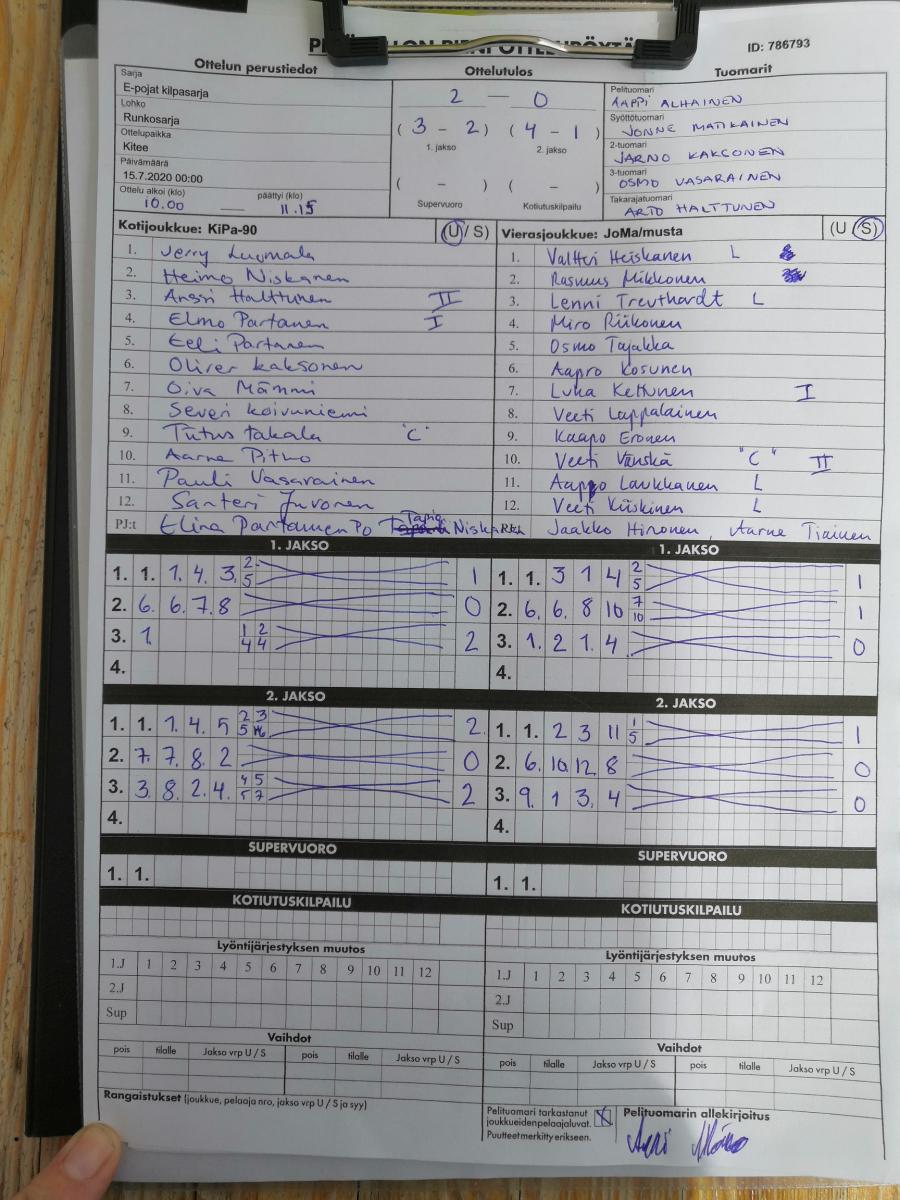 ID: 786793
Ottelun perustiedot
Ottelutulos
Tuomarit
Sarja
E-pojat kilpasarja
Lohko
Runkosarja
Ottelupaikka
Kitee
Päivämäärä
15.7.2020 00:00
Ottelu alkoi (klo) päättyi (klo)
10.00 11.15
2 — 0
( 3 - 2 ) ( 4 - 1 )
1. jakso 2. jakso
( - ) ( - )
Supervuoro Kotiutuskilpailu
Pelituomari
AAPPI ALHAINEN
Syöttötuomari
JONNE MATIKAINEN
2-tuomari
JARNO KAKSONEN
3-tuomari
OSMO VASARAINEN
Takarajatuomari
ARTO HALTTUNEN
Kotijoukkue: KiPa-90 (U / S)
1. Jerry Luomala
2. Heimo Niskanen
3. Anssi Halttunen II
4. Elmo Partanen I
5. Eeli Partanen
6. Oliver Kaksonen
7. Oiva Mömmi
8. Severi Koivuniemi
9. Tutus Takala "C"
10. Aarne Pitko
11. Pauli Vasarainen
12. Santeri Juvonen
PJ:t Elina Partanen PO Tapio Niskanen
Vierasjoukkue: JoMa/musta (U / S)
1. Valtteri Heiskanen L
2. Rasmus Mikkonen
3. Lenni Treuthardt L
4. Miro Riikonen
5. Osmo Tajakka
6. Aapro Kosunen
7. Luka Kettunen I
8. Veeti Lappalainen
9. Kaapo Eronen
10. Veeti Vänskä "C" II
11. Aappo Laukkanen L
12. Veeti Kiiskinen L
Jaakko Hironen, Aarne Tiainen
1. JAKSO
1. 1. 1. 4. 3. 2 5 1
2. 6. 6. 7. 8 0
3. 1. 1 4 2 4 2
4.
1. JAKSO
1. 1. 3 1 4 2 5 1
2. 6. 6. 8 10 7 10 1
3. 1. 2 1. 4 0
4.
2. JAKSO
1. 1. 1. 4. 5 2 5 3 2.
2. 7. 7. 8. 2 0
3. 3. 8. 2. 4. 4 5 5 7 2
4.
2. JAKSO
1. 1. 2 3 11 1 5 1
2. 6. 10. 12. 8 0
3. 9. 1 3. 4 0
4.
SUPERVUORO
1. 1.
SUPERVUORO
1. 1.
KOTIUTUSKILPAILU
KOTIUTUSKILPAILU
Lyöntijärjestyksen muutos
1.J 1 2 3 4 5 6 7 8 9 10 11 12
2.J
Sup
Lyöntijärjestyksen muutos
1.J 1 2 3 4 5 6 7 8 9 10 11 12
2.J
Sup
Vaihdot
pois tilalle Jakso vrp U / S pois tilalle Jakso vrp U / S
Vaihdot
pois tilalle Jakso vrp U / S pois tilalle Jakso vrp U / S
Rangaistukset (joukkue, pelaaja nro, jakso vrp U / S ja syy)
Pelituomari tarkastanut
joukkueiden pelaajaluvat. X
Puutteet merkitty erikseen.
Pelituomarin allekirjoitus